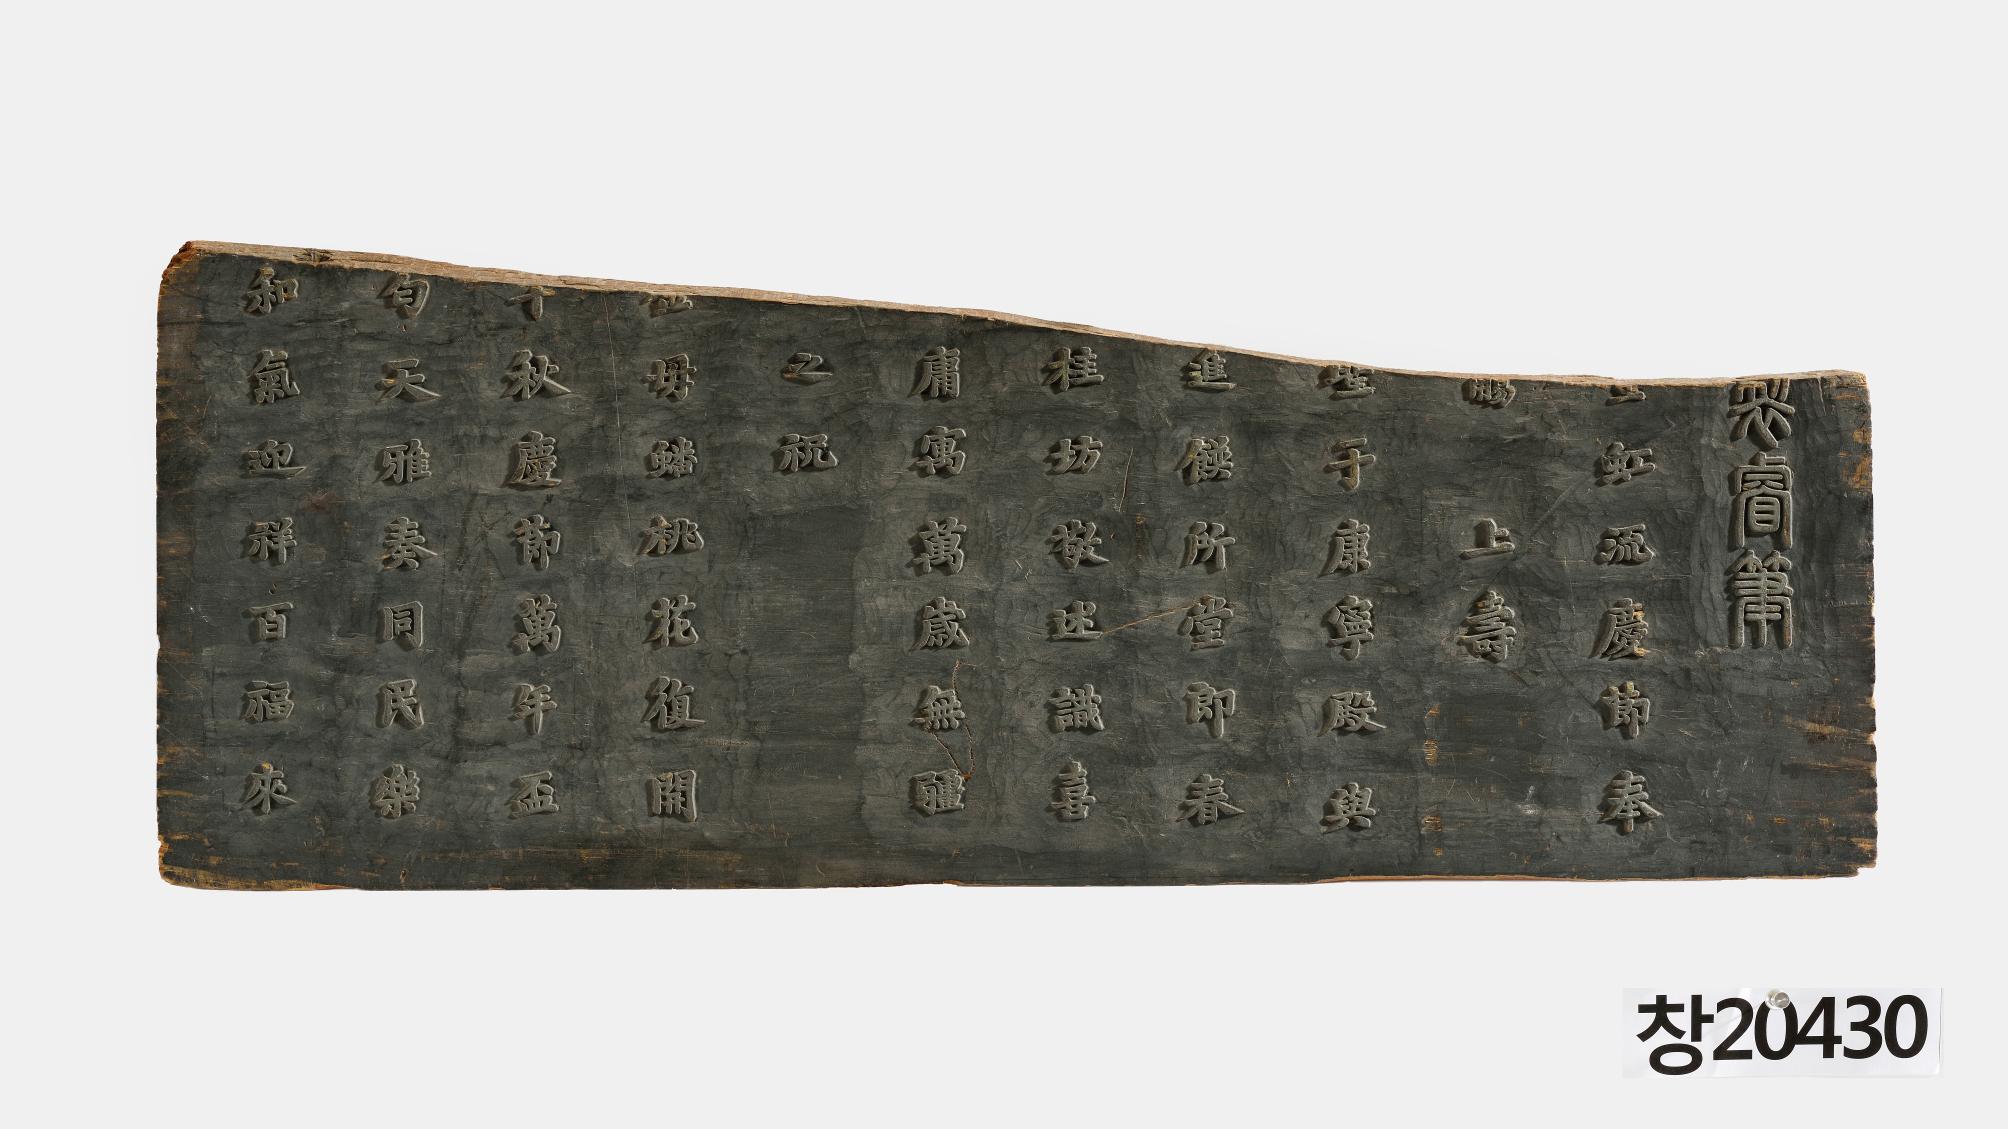 製睿筆
虹流慶節奉
觴上壽
于康寧殿與
進饌所堂郎春
桂坊敬述識喜
庸寓萬歲無疆
之祝
母蟠桃花復開
千秋慶節萬年盃
匀天雅奏同民樂
和氣迎祥百福來
창20430